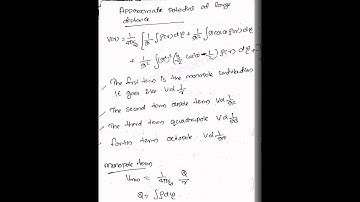 Approximate Potential at large
distance
V(r) = 1/4πε₀ [1/r ∫ρ(r')dv + 1/r² ∫r'cosθ ρ(r')dv
+ 1/r³ ∫(r')² (3/2 cos²θ - 1/2) ρ(r')dv +
The first term is the monopole contribution
It goes like V α 1/r
The second term dipole term V α 1/r²
The third term quadrupole V α 1/r³
forth term octopole V α 1/r⁴
monopole term
= 1/4πε₀ Q/r
Q = ∫ρdv